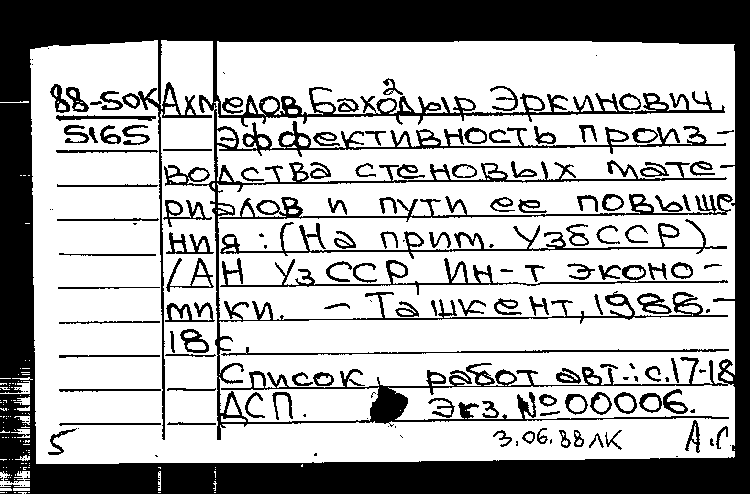 88-50К Ахмедов, Баходыр Эркинович.
2
5165 Эффективность произ-
водства стеновых мате-
риалов и пути ее повыше-
ния : (На прим. УзбССР)
/АН УзССР, Ин-т эконо-
мики. - Ташкент, 1988.-
18с.
Список работ авт.: с.17-18
ДСП. Экз. №00006.
5 3.06.88 ЛК А.Г.